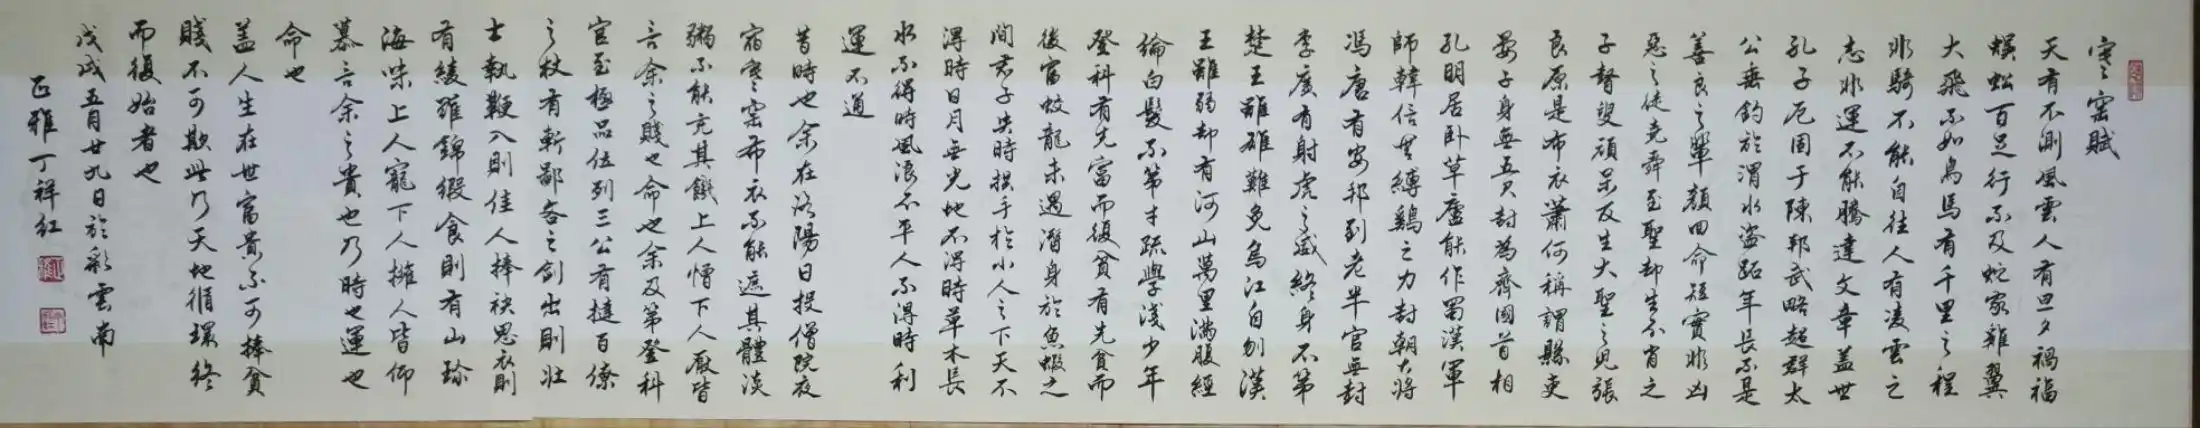 寒窑赋
天有不测風雲人有旦夕禍福
蜈蚣百足行不及蛇家雞翼
大飛不如鳥馬有千里之程
非騎不能自往人有凌雲之
志非運不能騰達文章盖世
孔子厄困于陳邦武略超群太
公垂釣於渭水盗跖年長不是
善良之輩顏回命短實非凶
惡之徒堯舜至聖却生不肖之
子瞽叟頑呆反生大聖之兒張
良原是布衣蕭何稱謂縣吏
晏子身無五尺封為齊國首相
孔明居卧草廬能作蜀漢軍
師韓信無縛鷄之力封朝大將
馮唐有安邦到老半官無封
李廣有射虎之威終身不第
楚王雖雄難免烏江自刎漢
王雖弱却有河山萬里滿腹經
綸白髮不第才疏學淺少年
登科有先富而後貧有先貧而
後富蛟龍未遇潛身於魚蝦之
間君子失時拱手於小人之下天不
得時日月無光地不得時草木長
水不得時風浪不平人不得時利
運不通
昔時也余在洛陽日投僧院夜
宿寒窑布衣不能遮其體淡
粥不能充其饑上人憎下人厭皆
言余之賤也命也余及第登科
官至極品位列三公有撻百僚
之杖有斬鄙吝之劍出則壯
士執鞭入則佳人捧袂思衣則
有綾羅錦緞食則有山珍
海味上人寵下人擁人皆仰
慕言余之貴也乃時也運也
命也
盖人生在世富貴不可捧貧
賤不可欺此乃天地循環終
而復始者也
戊戌五月廿九日於彩雲南
正雅丁祥紅